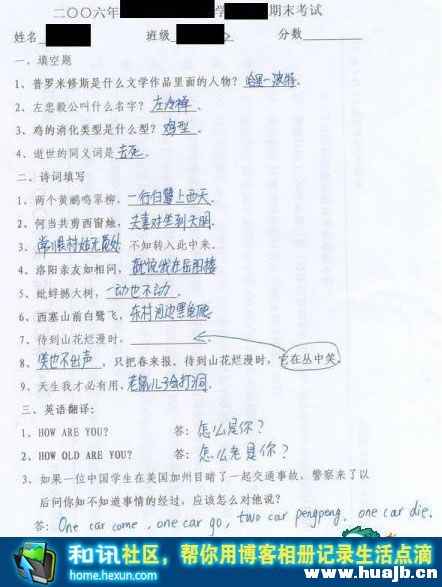 二〇〇六年 学 期末考试
姓名 班级 分数
一、填空题
1、普罗米修斯是什么文学作品里面的人物？哈里—波特.
2、左忠毅公叫什么名字？左冷禅.
3、鸡的消化类型是什么型？鸡型.
4、逝世的同义词是去死.
二、诗词填写
1、两个黄鹂鸣翠柳，一行白鹭上西天.
2、何当共剪西窗烛，夫妻对坐到天明.
3、常恨村姑无觅处，不知转入此中来。
4、洛阳亲友如相问，就说我在岳阳楼
5、蚍蜉撼大树，一动也不动.
6、西塞山前白鹭飞，东村河边黑龟爬.
7、待到山花烂漫时，
8、笑也不出声，只把春来报。待到山花烂漫时，它在丛中笑。
9、天生我才必有用，老鼠儿子会打洞.
三、英语翻译：
1、HOW ARE YOU? 答：怎么是你？
2、HOW OLD ARE YOU? 答：怎么老是你？
3、如果一位中国学生在美国加州目睹了一起交通事故，警察来了以
后问你知不知道事情的经过，应该怎么对他说？
答：One car come, one car go, two car pengpeng, one car die.
和讯社区，帮你用博客相册记录生活点滴
home.hexun.com
www.huajb.cn